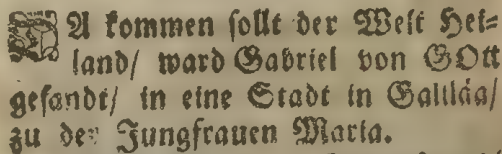 DA kommen sollt der Welt Hei=
land/ ward Gabriel von GOtt
gesandt/ in eine Stadt in Galiläa/
zu der Jungfrauen Maria.